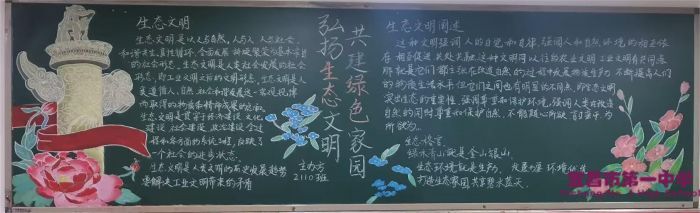 生态文明
生态文明是以人与自然、人与人、人与社会
和谐共生、良性循环、全面发展、持续繁荣为基本宗旨
的社会形态。生态文明是人类社会发展的社会
形态,即工业文明之后的文明形态。生态文明是人
类遵循人、自然、社会和谐发展这一客观规律
而取得的物质和精神成果的总和。
生态文明是贯穿于经济建设、文化
建设、社会建设、政治建设全过
程和各方面的系统工程,反映了
一个社会的进步状态。
生态文明是人类文明的历史发展趋势
工业文明带来的矛盾
弘扬生态文明
共建绿色家园
主办方
2110班
生态文明阐述
这种文明强调人的自觉和自律,强调人和自然环境的相互依
存、相互促进、共处共融。这种文明同以往的农业文明、工业文明有共同点
那就是它们都主张在改造自然的过程中发展物质生产力,不断提高人们
的物质生活水平。但它们之间也有明显的不同点,即生态文明
突出生态的重要性,强调尊重和保护环境,强调人类在改造
自然的同时尊重和保护自然,不能随心所欲,
所欲为。
生态格言
绿水青山就是金山银山
生态环境就是生产力
打造生态家园共享碧水蓝天
市第一中学